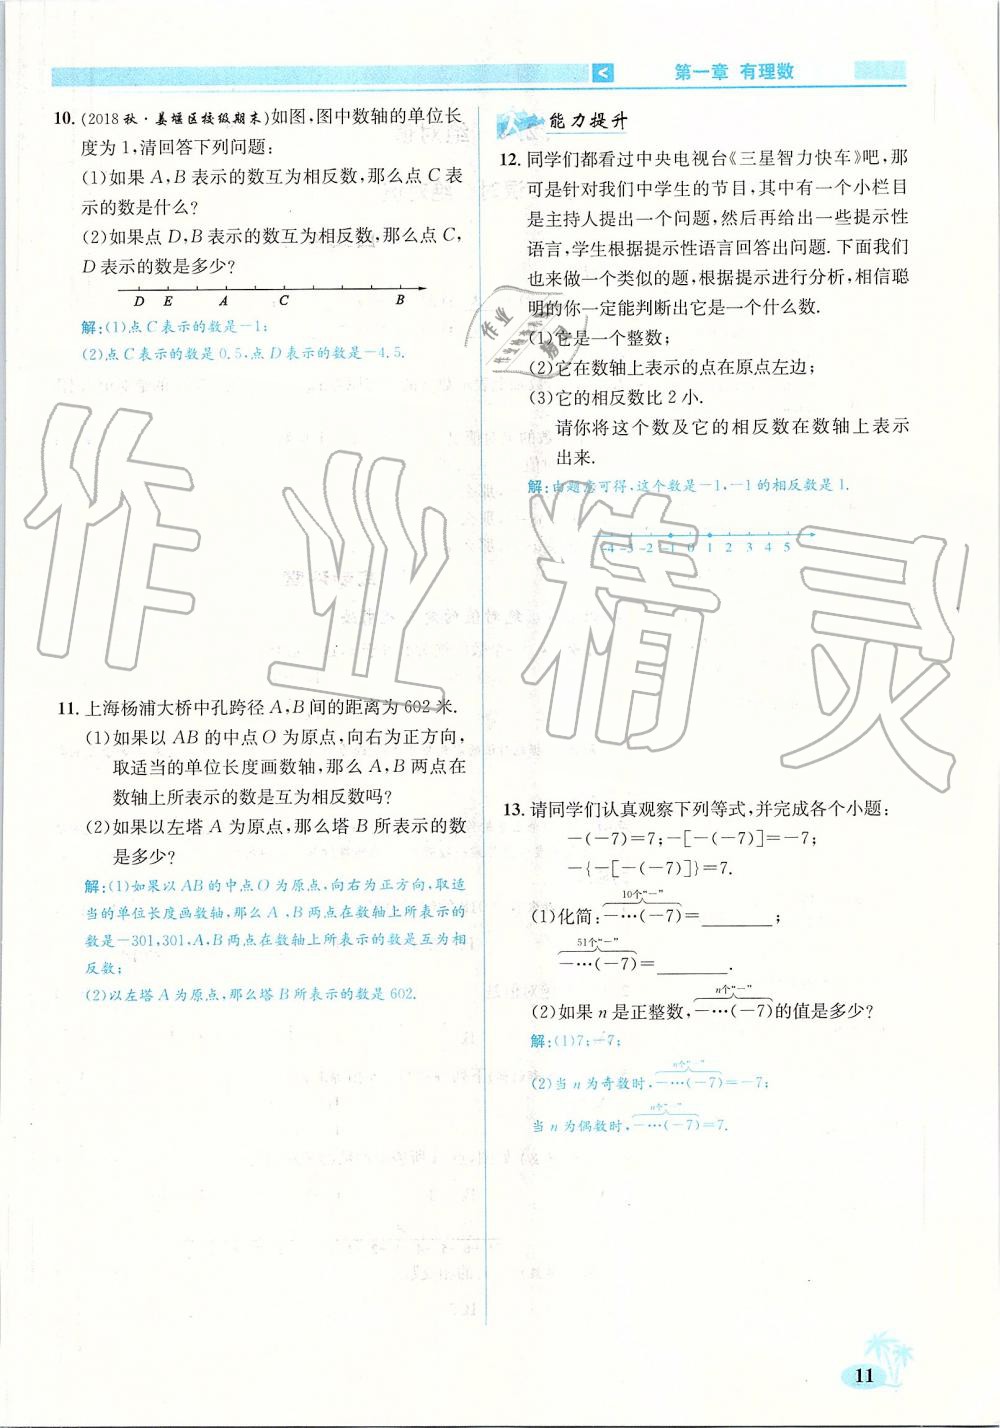 第一章 有理数
10. (2018秋·姜堰区校级期末)如图,图中数轴的单位长
度为1,请回答下列问题:
(1)如果A,B表示的数互为相反数,那么点C表
示的数是什么?
(2)如果点D,B表示的数互为相反数,那么点C,
D表示的数是多少?
D E A C B
解:(1)点C表示的数是-1;
(2)点C表示的数是0.5,点D表示的数是-4.5.
11. 上海杨浦大桥中孔跨径A,B间的距离为602米.
(1)如果以AB的中点O为原点,向右为正方向,
取适当的单位长度画数轴,那么A,B两点在
数轴上所表示的数是互为相反数吗?
(2)如果以左塔A为原点,那么塔B所表示的数
是多少?
解:(1)如果以AB的中点O为原点,向右为正方向,取适
当的单位长度画数轴,那么A、B两点在数轴上所表示的
数是-301,301.A,B两点在数轴上所表示的数是互为相
反数;
(2)以左塔A为原点,那么塔B所表示的数是602.
能力提升
12. 同学们都看过中央电视台《三星智力快车》吧,那
可是针对我们中学生的节目,其中有一个小栏目
是主持人提出一个问题,然后再给出一些提示性
语言,学生根据提示性语言回答出问题.下面我们
也来做一个类似的题,根据提示进行分析,相信聪
明的你一定能判断出它是一个什么数.
(1)它是一个整数;
(2)它在数轴上表示的点在原点左边;
(3)它的相反数比2小.
请你将这个数及它的相反数在数轴上表示
出来.
解:由题意可得,这个数是-1,-1的相反数是1.
-4 -3 -2 -1 0 1 2 3 4 5
13. 请同学们认真观察下列等式,并完成各个小题:
-(-7)=7;-[-(-7)]=-7;
-{-[-(-7)]}=7.
10个“-”
(1)化简:-…(-7)=________;
51个“-”
-…(-7)=________.
n个“-”
(2)如果n是正整数,-…(-7)的值是多少?
解:(1)7;-7;
n个“-”
(2)当n为奇数时,-…(-7)=-7;
n个“-”
当n为偶数时,-…(-7)=7.
11
作业精灵